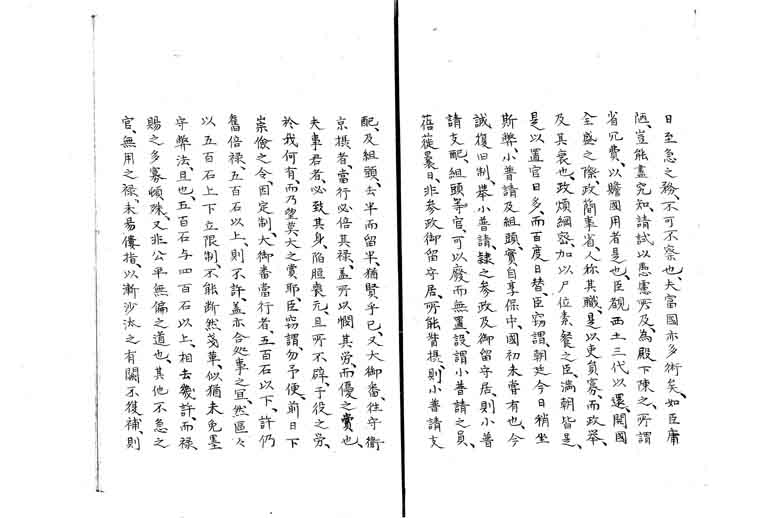 日至急之務、不可不察也、夫富國亦多術矣、如臣庸
陋、豈能盡究知、請試以愚慮所及、為殿下陳之、所謂
省冗費、以贍國用者是也、臣觀西土三代以還、開國
全盛之際、政簡事省、人称其職、是以吏員寡、而政舉、
及其衰也、政煩綱密、加以尸位素餐之臣、滿朝皆是、
是以置官日多、而百度日替、臣窃謂、朝廷今日稍坐
斯弊、小普請及組頭、實自享保中、國初未甞有也、今
誠復旧制、舉小普請、隸之参政及御留守居、則小普
請支配、組頭等官、可以廢而無置、設謂小普請之員、
蓓蓰曩日、非参政御留守居、所能皆摂、則小普請支
配、及組頭、去半而留半、猶賢乎已、又大御番、往守衞
京摂者、當行必倍其禄、盖所以憫其労、而優之賞也、
夫事君者、必致其身、陷胆喪元、且所不辞、于役之労、
於我何有、而乃望莫大之賞耶、臣窃謂、勿予便、前日下
崇儉之令、因定制、大御番當行者、五百石以下、許仍
舊倍禄、五百石以上、則不許、盖亦合処事之宜、然區々
以五百石上下立限制、不能断然茂革、似猶未免墨
守弊法、且也、五百石与四百石以上、相去幾許、而禄
賜之多寡頓殊、又非公平無偏之道也、其他不急之
官、無用之禄、未易僂指、以漸沙汰之、有闕不復補、則